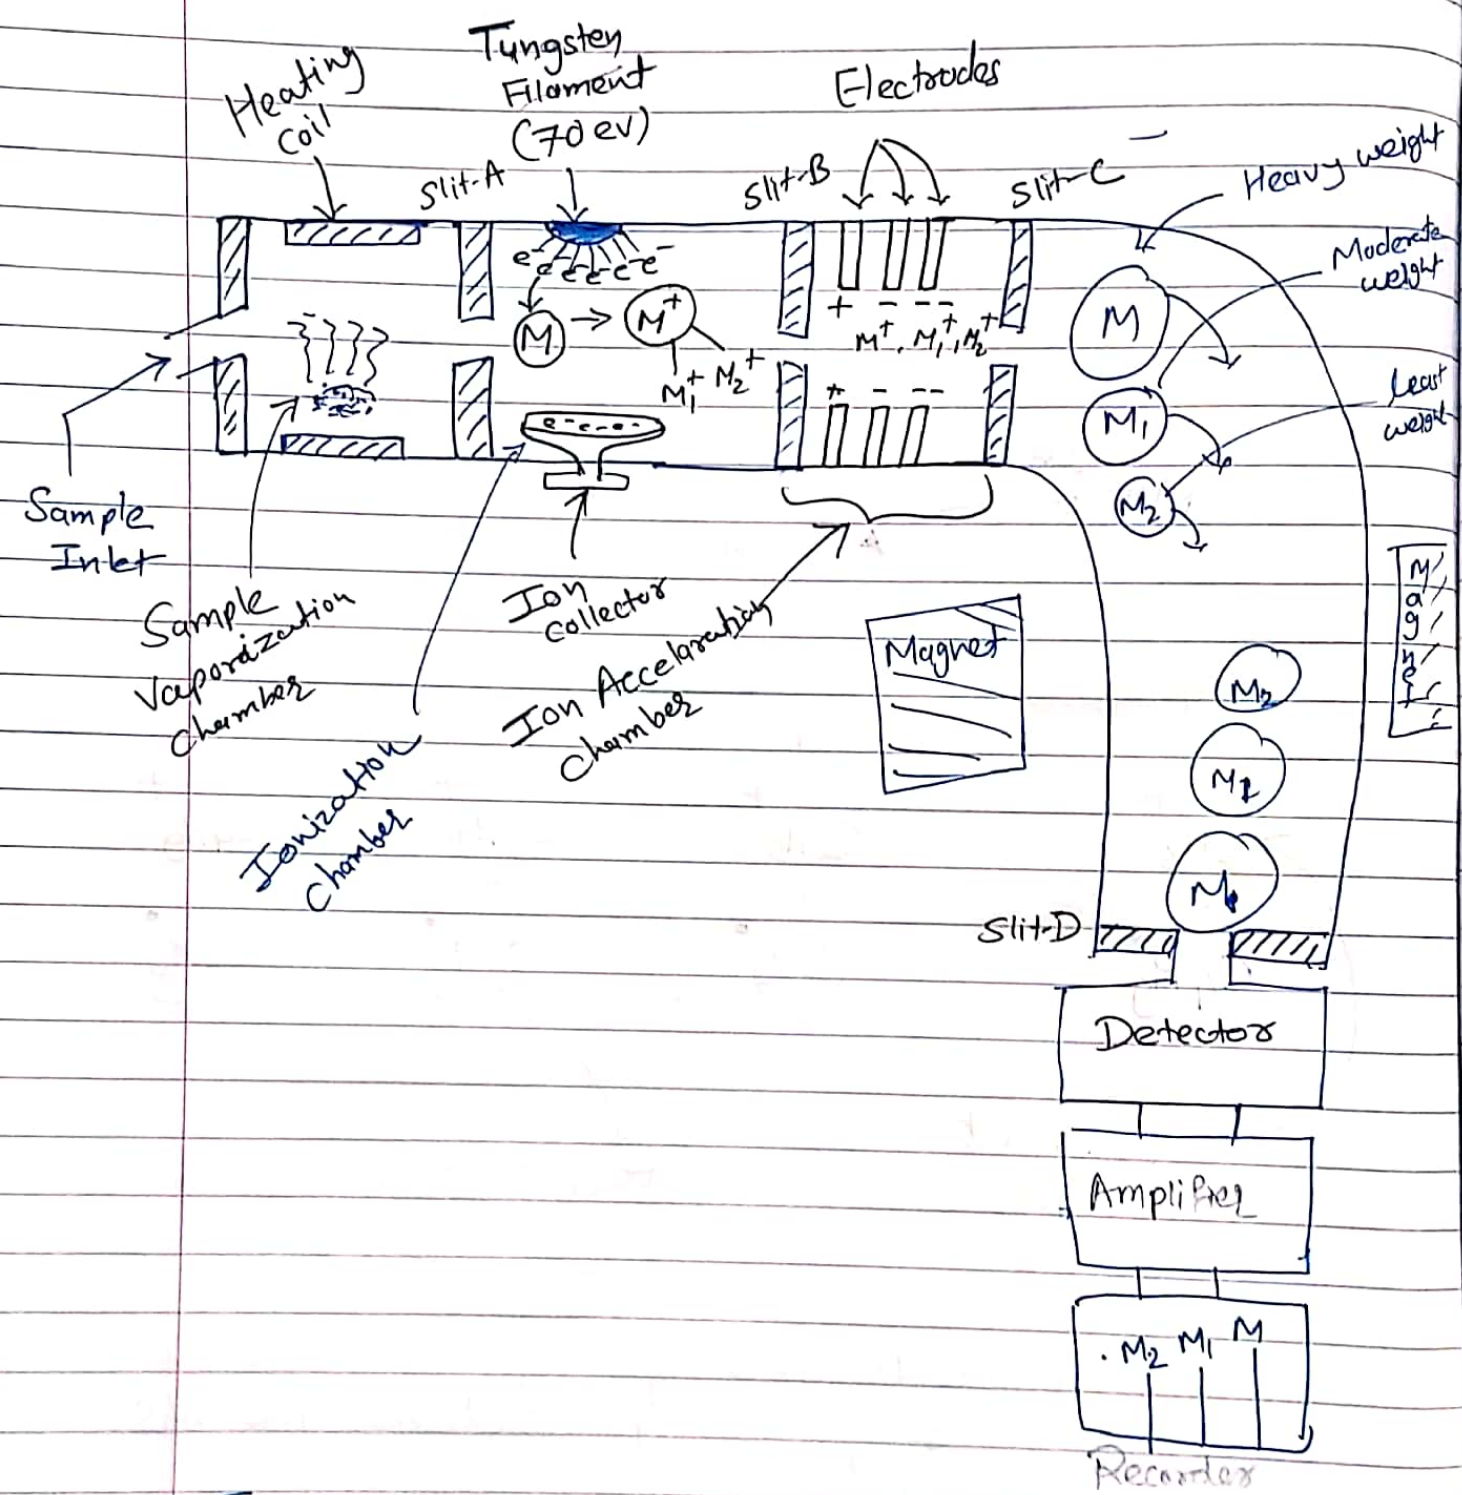 Heating
coil
Tungsten
Filament
(70 ev)
Electrodes
Slit-A
Slit-B
Slit-C
Heavy weight
Moderate
weight
Least
weight
e- e- e- e- e- e-
M → M+
M1+ M2+
+ - --
M+, M1+, M2+
+ - --
M
M1
M2
e- - e- -
Sample
Inlet
Sample
Vaporization
chamber
Ionization
chamber
Ion
collector
Ion Accelaration
chamber
Magnet
Magnet
M2
M1
M
Slit-D
Detector
Amplifier
M2 M1 M
Recorder